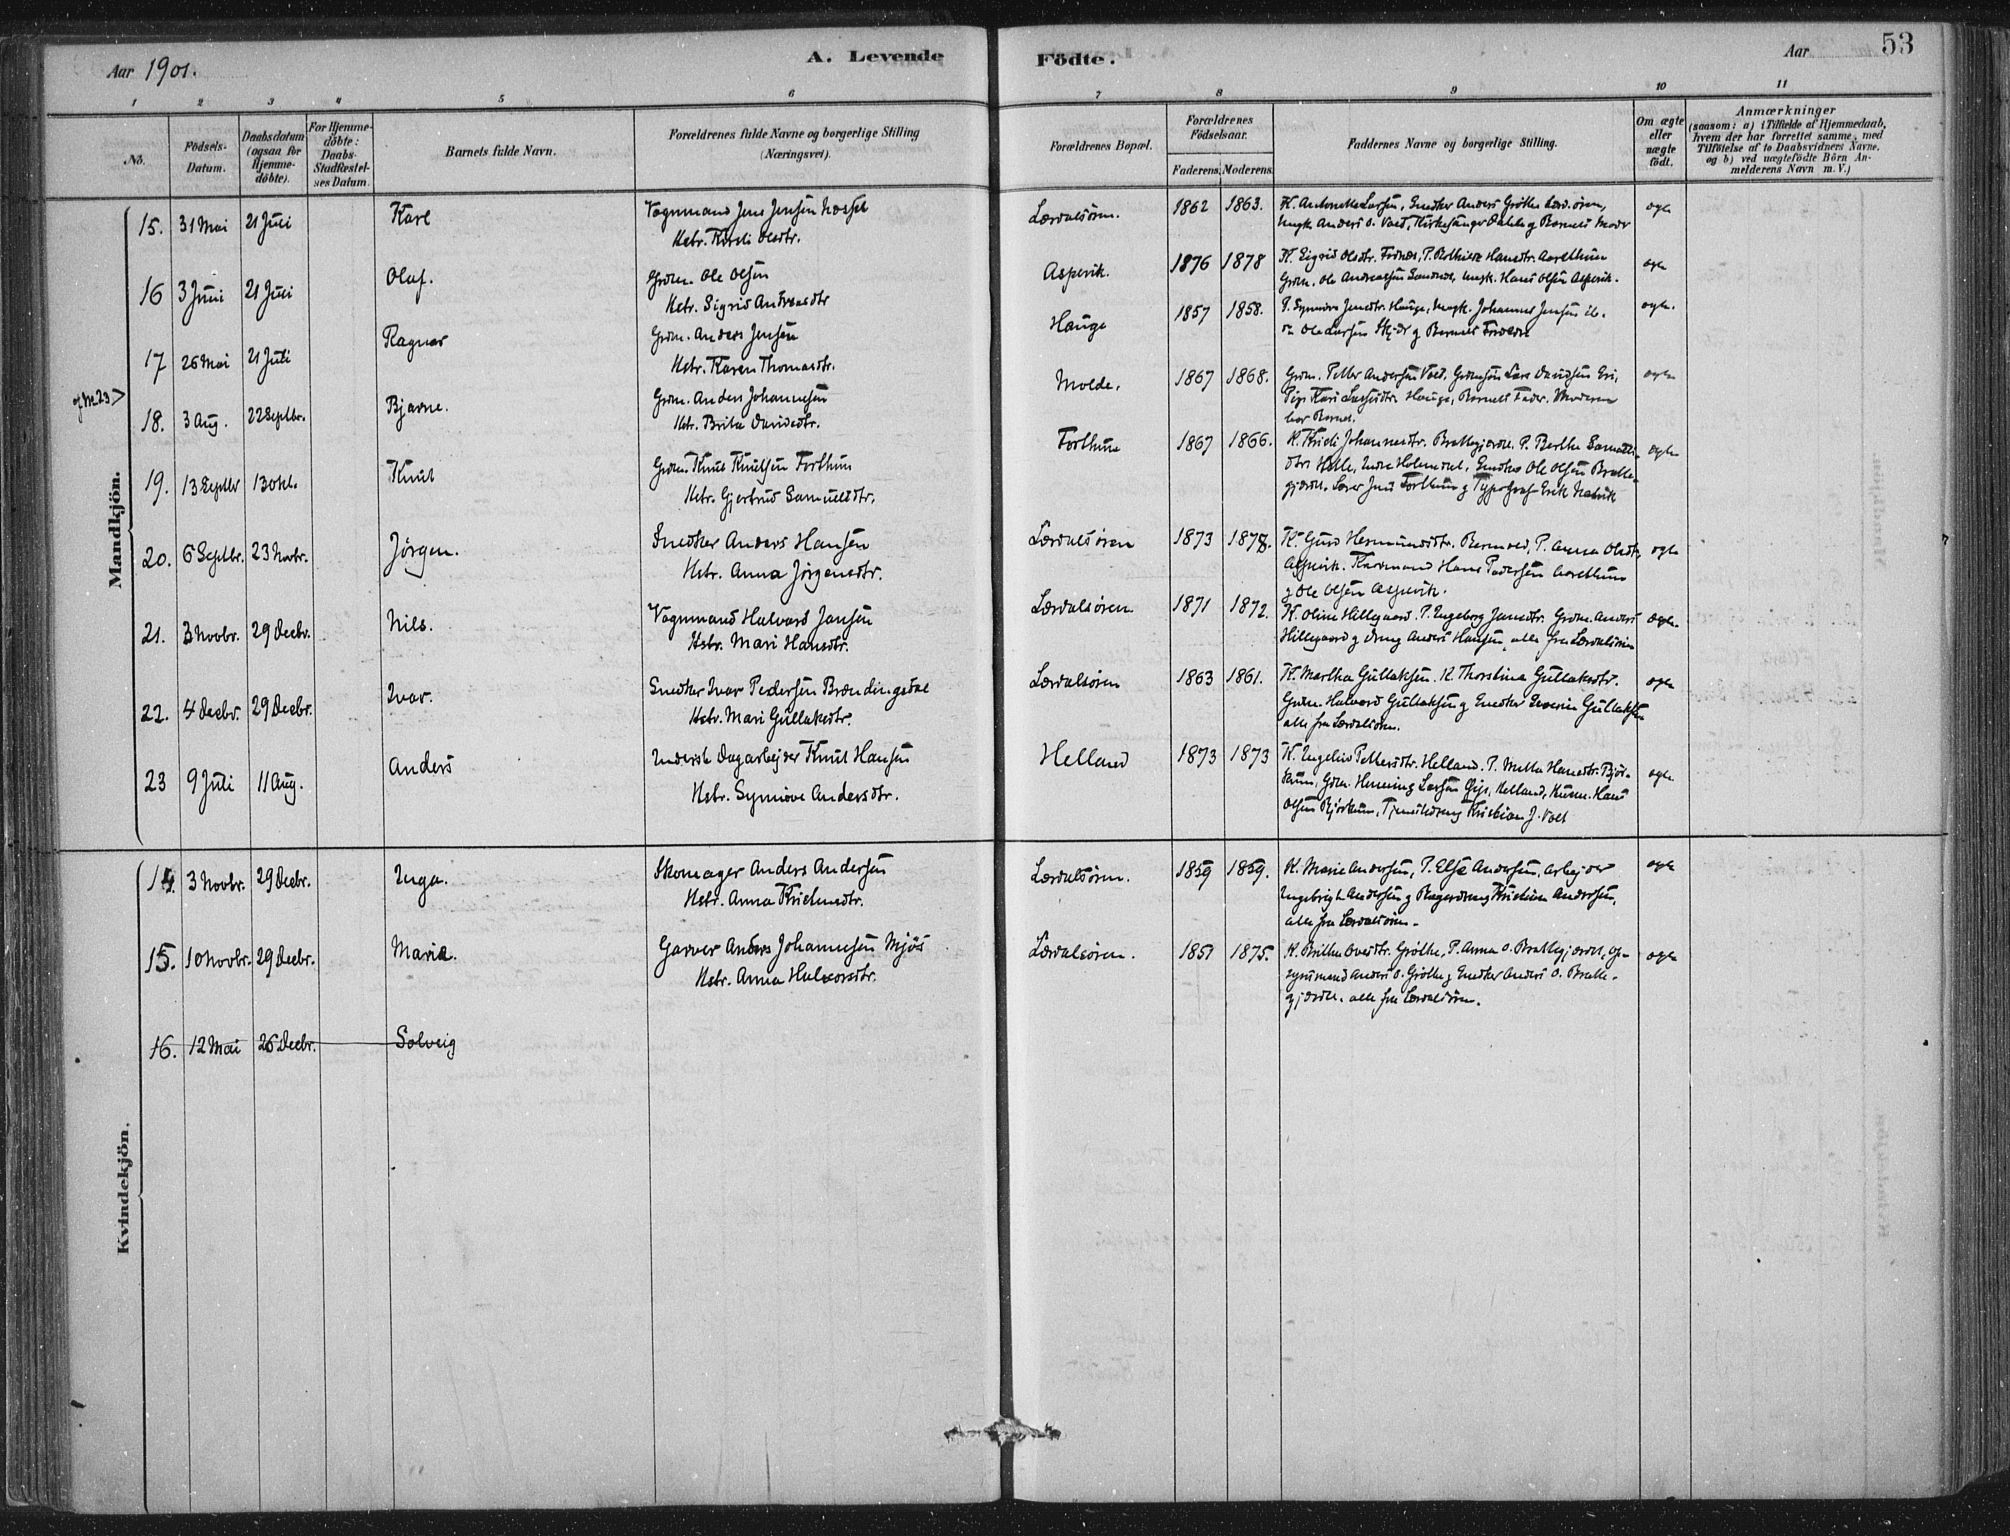 Aar 1901.
A. Levende
Födte.
Aar
53
1 2 3 4 5 6 7 8 9 10 11
No.
Födsels-Datum.
Daabsdatum (ogsaa for Hjemme-døbte).
For Hjemme-døbte: Daabs-Stadfæstel-ses Datum.
Barnets fulde Navn.
Forældrenes fulde Navne og borgerlige Stilling
(Næringsvei).
Forældrenes Bopæl.
Forældrenes Födselsaar.
Faderens. Moderens.
Faddernes Navne og borgerlige Stilling.
Om ægte eller uægte födt.
Anmærkninger
(saasom: a) i Tilfælde af Hjemmedaab,
hvem der har forrettet samme, med
Tilföielse af to Daabsvidners Navne,
og b) ved uægtefödte Börn An-
melderens Navn m. V.)
Mandkjön.
15. 31 Mai 21 Juli Karl Vognmand Jens Jensen
Hstr. Kirsti Olsdtr.
Lærdalsøren. 1862 1863. K. Antonette Larsen, Snedker Anders Grøthe Lærd.øren,
Ungk. Anders O. Vold, Kirkesanger Dahl og Barnets Moder
ægte
16 3 Juni 21 Juli Olaf. Grdm. Ole Olsen
Hstr. Sigrid Andreasdtr
Aspevik. 1876 1878 K. Sigrid Olsdtr. Fodnæs, P. Bothilde Hansdtr. Aarethun
Grdm. Ole Andreassen Sandnes, Ungk. Hans Olsen Aspevik.
ægte
17 26 Mai 21 Juli Ragnar Grdm. Anders Jensen
Hstr. Karen Thomasdtr.
Hauge 1857 1858. P. Synneva Jensdtr. Hauge, Ungk. Johannes Jensen ib.
og Barnets Forældre
ægte.
cf No. 23 >
18. 3 Aug. 22 Septbr. Bjarne. Grdm. Anders Johannesen
Hstr. Brita Davidsdtr.
Molde. 1867 1868. Grdm. Petter Andersen Vold, Grdmsøn Lars Davidsen Eri,
Pige Kari Larsdtr. Hauge, Barnets Fader. Moderen
bar Barnet.
ægte
19. 13 Septbr 13 Okt. Knut Grdm. Knut Knutsen Forthun
Hstr. Gjertrud Samuelsdtr.
Forthun 1867 1866. K. Kristi Johannesdtr. Brattegjærde. P. Berthe Samuels-
dtr. Snedker Ole Olsen Bratte-
gjærde. Lærer Jens Forthun og Typograf Erik
ægte
20. 6 Septbr. 23 Novbr. Jørgen. Snedker Anders Hansen
Hstr. Anna Jørgensdtr.
Lærdalsøren 1873 1878. K. Guro Hermundsdtr. P. Anna Olsdtr.
Aspevik. Hans Pedersen Aarethun
og Ole Olsen Aspevik.
ægte
21. 3 Novbr. 29 Decbr. Nils. Vognmand Halvard Jansen
Hstr. Mari Hansdtr.
Lærdalsøren 1871 1872. K. Oline Hillegaard. P. Ingeborg Jansdtr. Grdm. Anders
Hillegaard og Dreng Anders Hansen, alle fra Lærdalsøren
ægte.
22. 4 Decbr. 29 Decbr. Ivar. Snedker Ivar Pedersen Brændingsdal
Hstr. Mari Gullaksdtr.
Lærdalsøren 1863 1861. K. Martha Gullaksen. K. Thorstina Gullaksdtr.
Grdm. Halvard Gullaksen og Snedker Severin Gullaksen
alle fra Lærdalsøren.
ægte
23 9 Juli 11 Aug. Anders Inderst Dagarbejder Knut Hansen
Hstr. Synnøve Andersdtr.
Helland 1873 1873 K. Ingelev Pettersdtr. Helland. P. Metta Hansdtr. Bjør-
kum, Grdm. Henning Larsen Helland, Husm. Hans
Olsen Bjørkum, Tjenestedreng Kristian J. Voll
ægte
Kvindekjön.
14. 3 Novbr. 29 Decbr. Inga. Skomager Anders Andersen
Hstr. Anna Kristensdtr.
Lærdalsøren. 1859 1859. K. Marie Andersen, P. Else Andersen, Arbejder
Ingebrigt Andersen og Bagerdreng Kristian Andersen,
alle fra Lærdalsøren.
ægte
15. 10 Novbr. 29 Decbr. Maria. Garver Anders Johannesen Mjøs
Hstr. Anna Halvorsdtr.
Lærdalsøren. 1851 1875. K. Brithe Olesdtr. Grøthe, P. Anna O. Brattegjærde, Op-
synsmand Anders O. Grøthe og Snedker Anders O. Bratte-
gjærde. alle fra Lærdalsøren.
ægte
16. 12 Mai 26 Decbr. Solveig